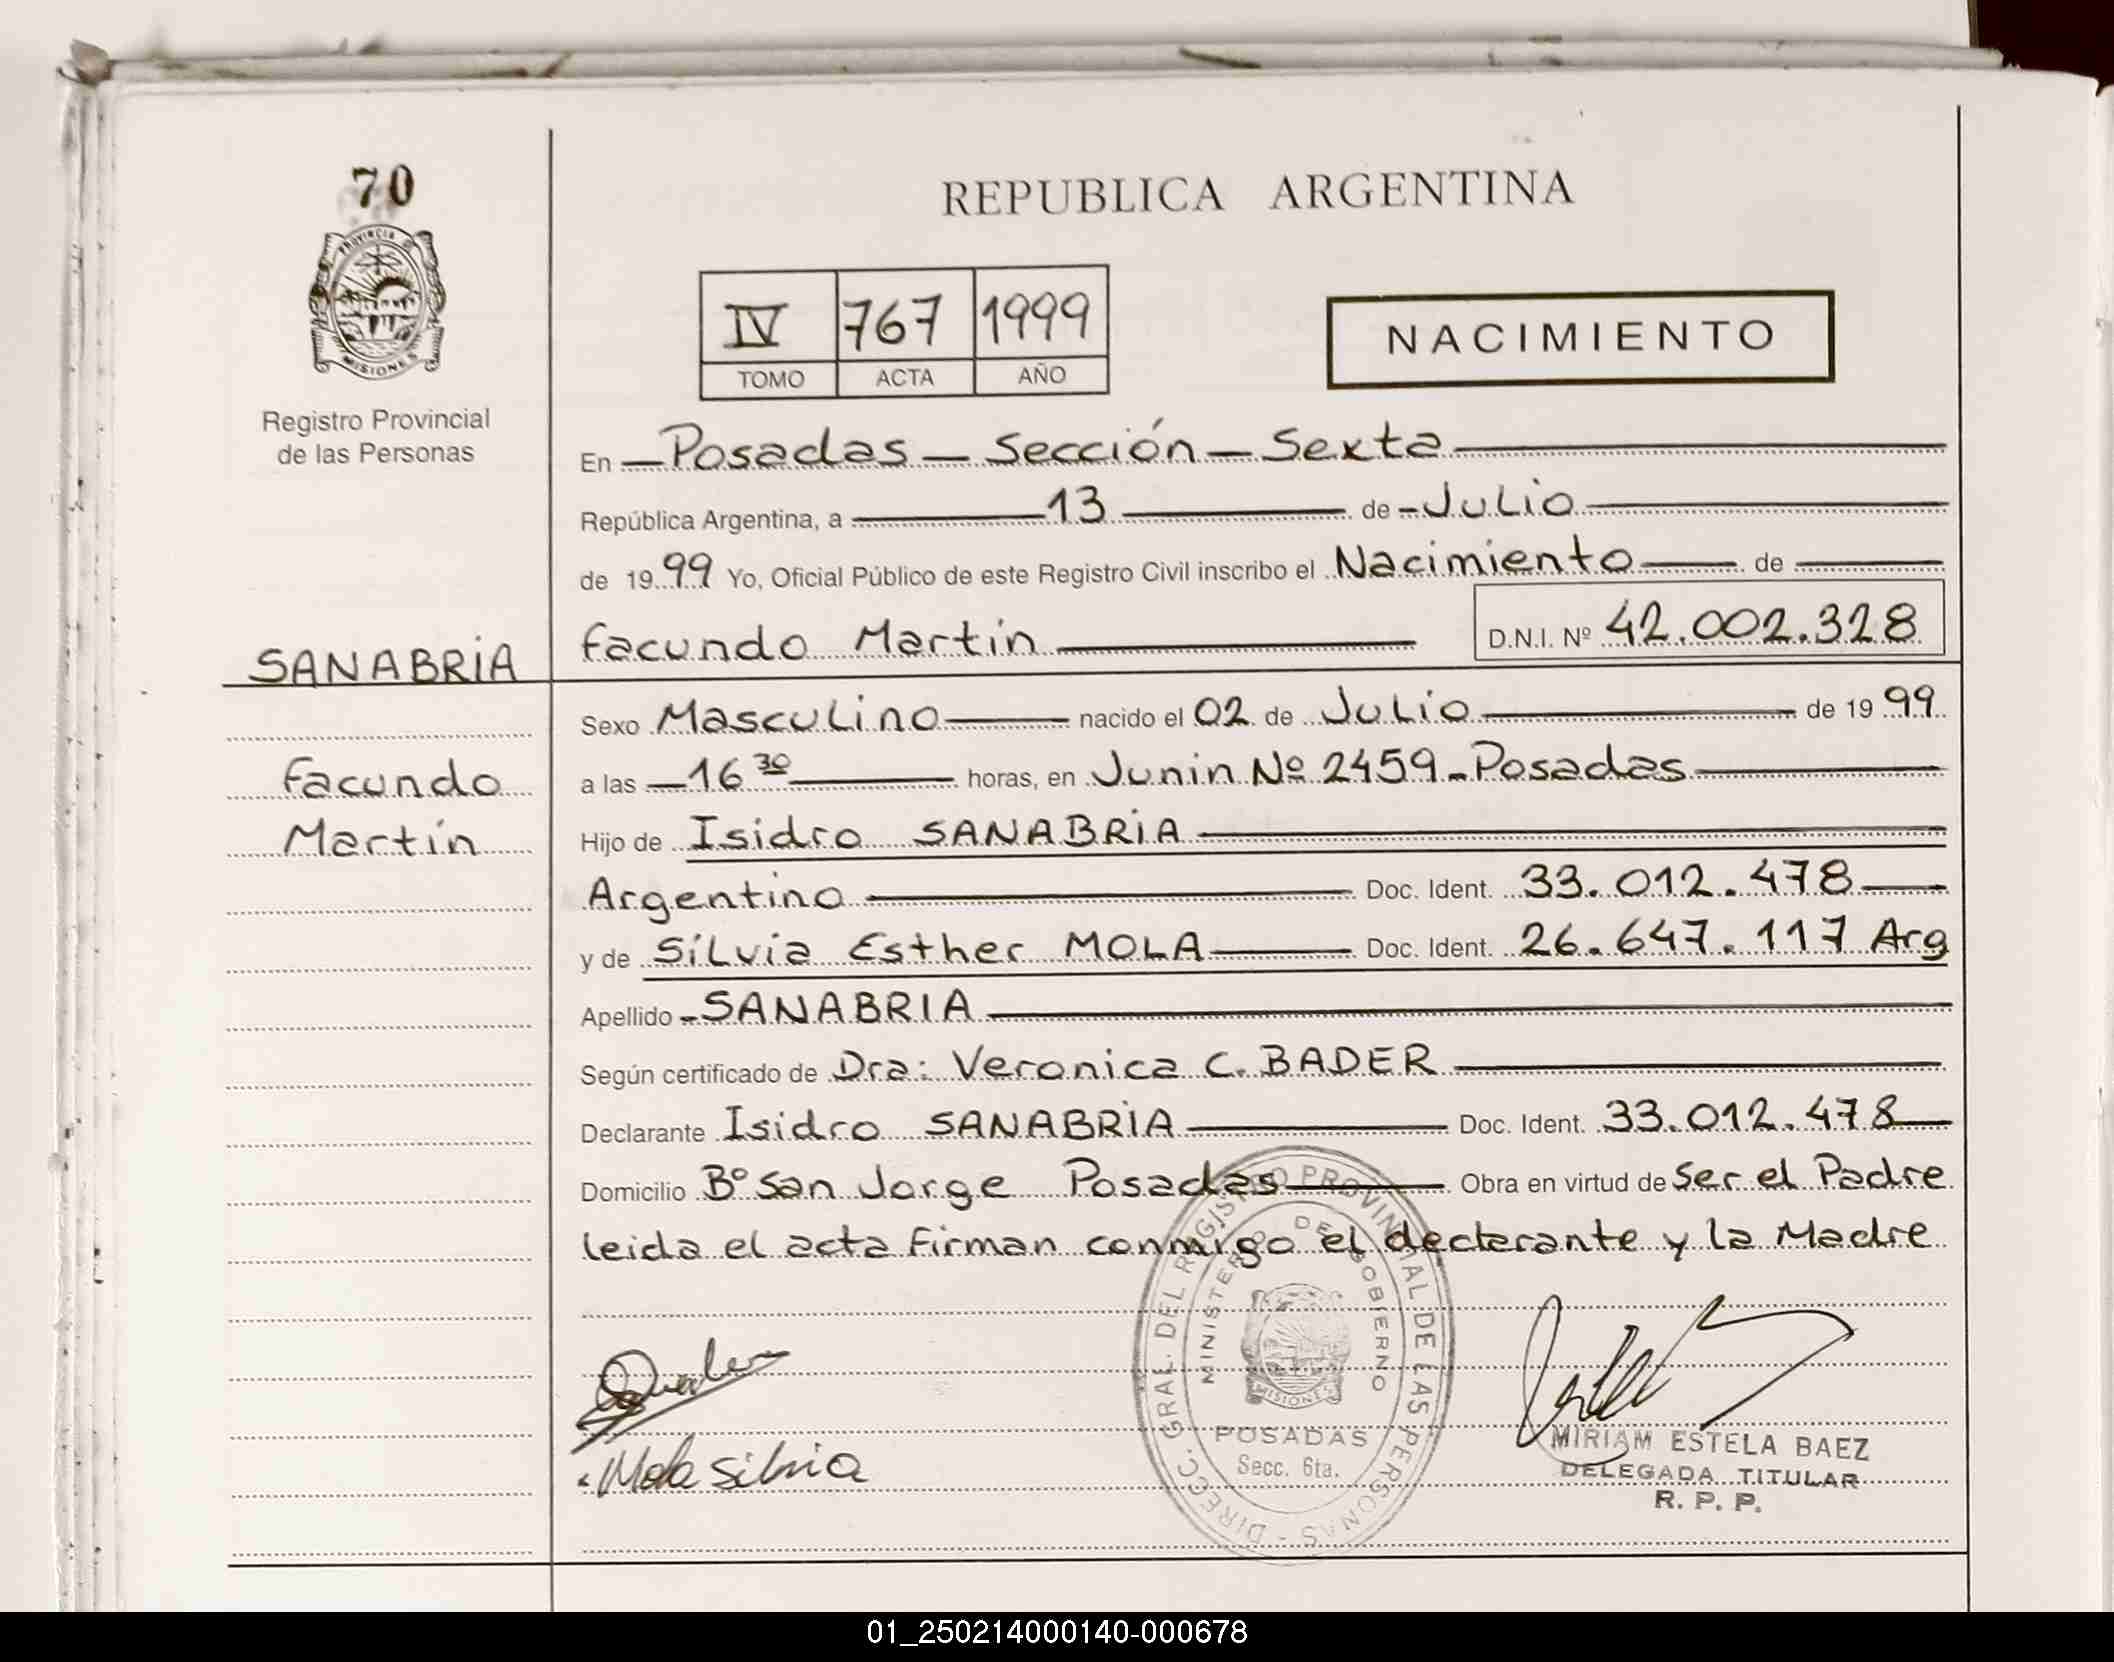 70
PROVINCIA DE
MISIONES
Registro Provincial
de las Personas
REPUBLICA ARGENTINA
IV 767 1999
TOMO ACTA AÑO
NACIMIENTO
En Posadas - Sección - Sexta
República Argentina, a 13 de Julio
de 1999 Yo, Oficial Público de este Registro Civil inscribo el Nacimiento de
Facundo Martin D.N.I. Nº 42.002.328
SANABRIA
Facundo
Martin
Sexo Masculino nacido el 02 de Julio de 1999
a las 16 30 horas, en Junin Nº 2459 - Posadas
Hijo de Isidro SANABRIA
Argentino Doc. Ident. 33.012.478
y de Silvia Esther MOLA Doc. Ident. 26.647.117 Arg
Apellido SANABRIA
Según certificado de Dra: Veronica C. BADER
Declarante Isidro SANABRIA Doc. Ident. 33.012.478
Domicilio Bº San Jorge Posadas Obra en virtud de Ser el Padre
leida el acta firman conmigo el declarante y la Madre
DIRECC. GRAL. DEL REGISTRO PROVINCIAL DE LAS PERSONAS -
MINISTERIO DE GOBIERNO
MISIONES
POSADAS
Secc. 6ta.
Mola Silvia
MIRIAM ESTELA BAEZ
DELEGADA TITULAR
R. P. P.
01_250214000140-000678